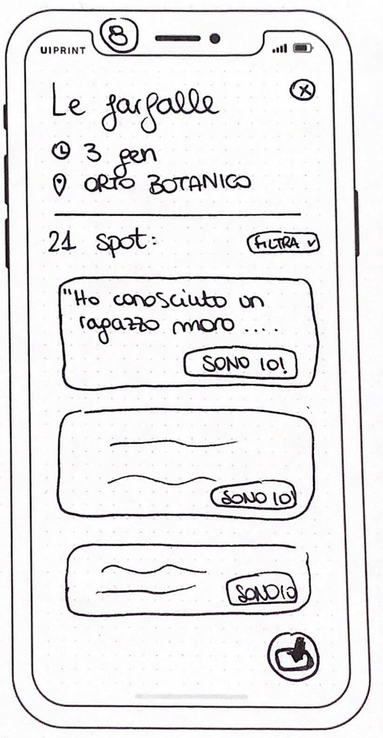 8
UIPRINT
Le farfalle
3 gen
ORTO BOTANICO
21 spot:
FILTRA
"Ho conosciuto un
ragazzo moro ....
SONO IO!
SONO IO!
SONO IO